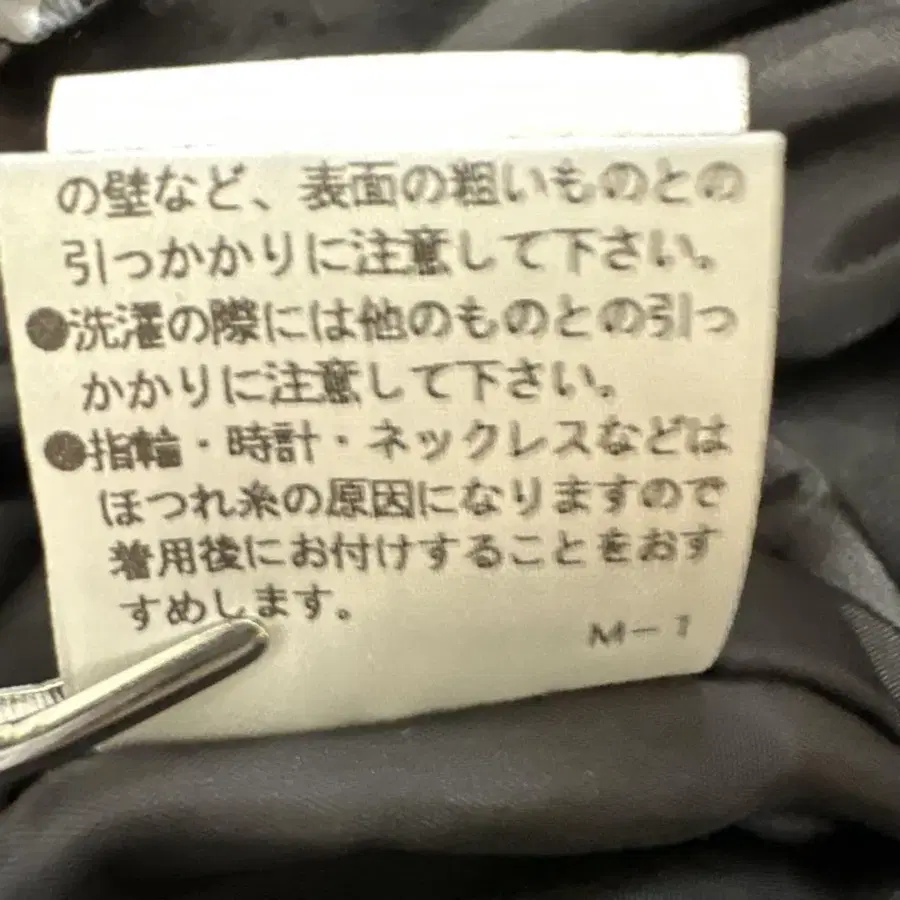 の壁など、表面の粗いものとの
引っかかりに注意して下さい。
●洗濯の際には他のものとの引っ
かかりに注意して下さい。
●指輪・時計・ネックレスなどは
ほつれ糸の原因になりますので
着用後にお付けすることをおす
すめします。
M-1